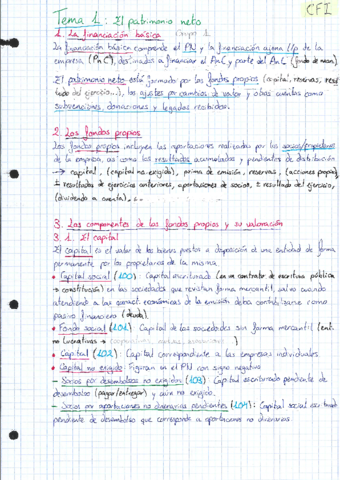 CFI
Tema 1: El patrimonio neto
1. La financiación básica Grupo 1
La financiación básica comprende el PN y la financiación ajena l/p de la
empresa (PnC), destinados a financiar el AnC y parte del AnC (fondo de man).
El patrimonio neto está formado por los fondos propios (capital, reservas, resul
tado del ejercicio...), los ajustes por cambios de valor y otras cuentas como
subvenciones, donaciones y legados recibidos.
2. Los fondos propios
Los fondos propios incluyen las aportaciones realizadas por los socios/propietarios
de la empresa, así como los resultados acumulados y pendientes de distribución
→ capital, (capital no exigido), prima de emisión, reservas, (acciones propias)
± resultados de ejercicios anteriores, aportaciones de socios, ± resultado del ejercicio,
(dividendo a cuenta),
3. Los componentes de los fondos propios y su valoración
3.1. El capital
El capital es el valor de los bienes puestos a disposición de una entidad de forma
permanente por los propietarios de la misma.
• Capital social (100): Capital escriturado (en un contrato de escritura pública
→ constitución) en las sociedades que revistan forma mercantil, salvo cuando
atendiendo a las caract. económicas de la emisión deba contabilizarse como
pasivo financiero (deuda).
• Fondo social (101): Capital de las sociedades sin forma mercantil (enti.
no lucrativas → )
• Capital (102): Capital correspondiente a las empresas individuales
• Capital no exigido: Figuran en el PN con signo negativo
– Socios por desembolsos no exigidos (103): Capital escriturado pendiente de
desembolso (pagar/entregar) y aun no exigido.
– Socios por aportaciones no dinerarias pendientes (104): Capital social escriturado
pendiente de desembolso que corresponde a aportaciones no dinerarias